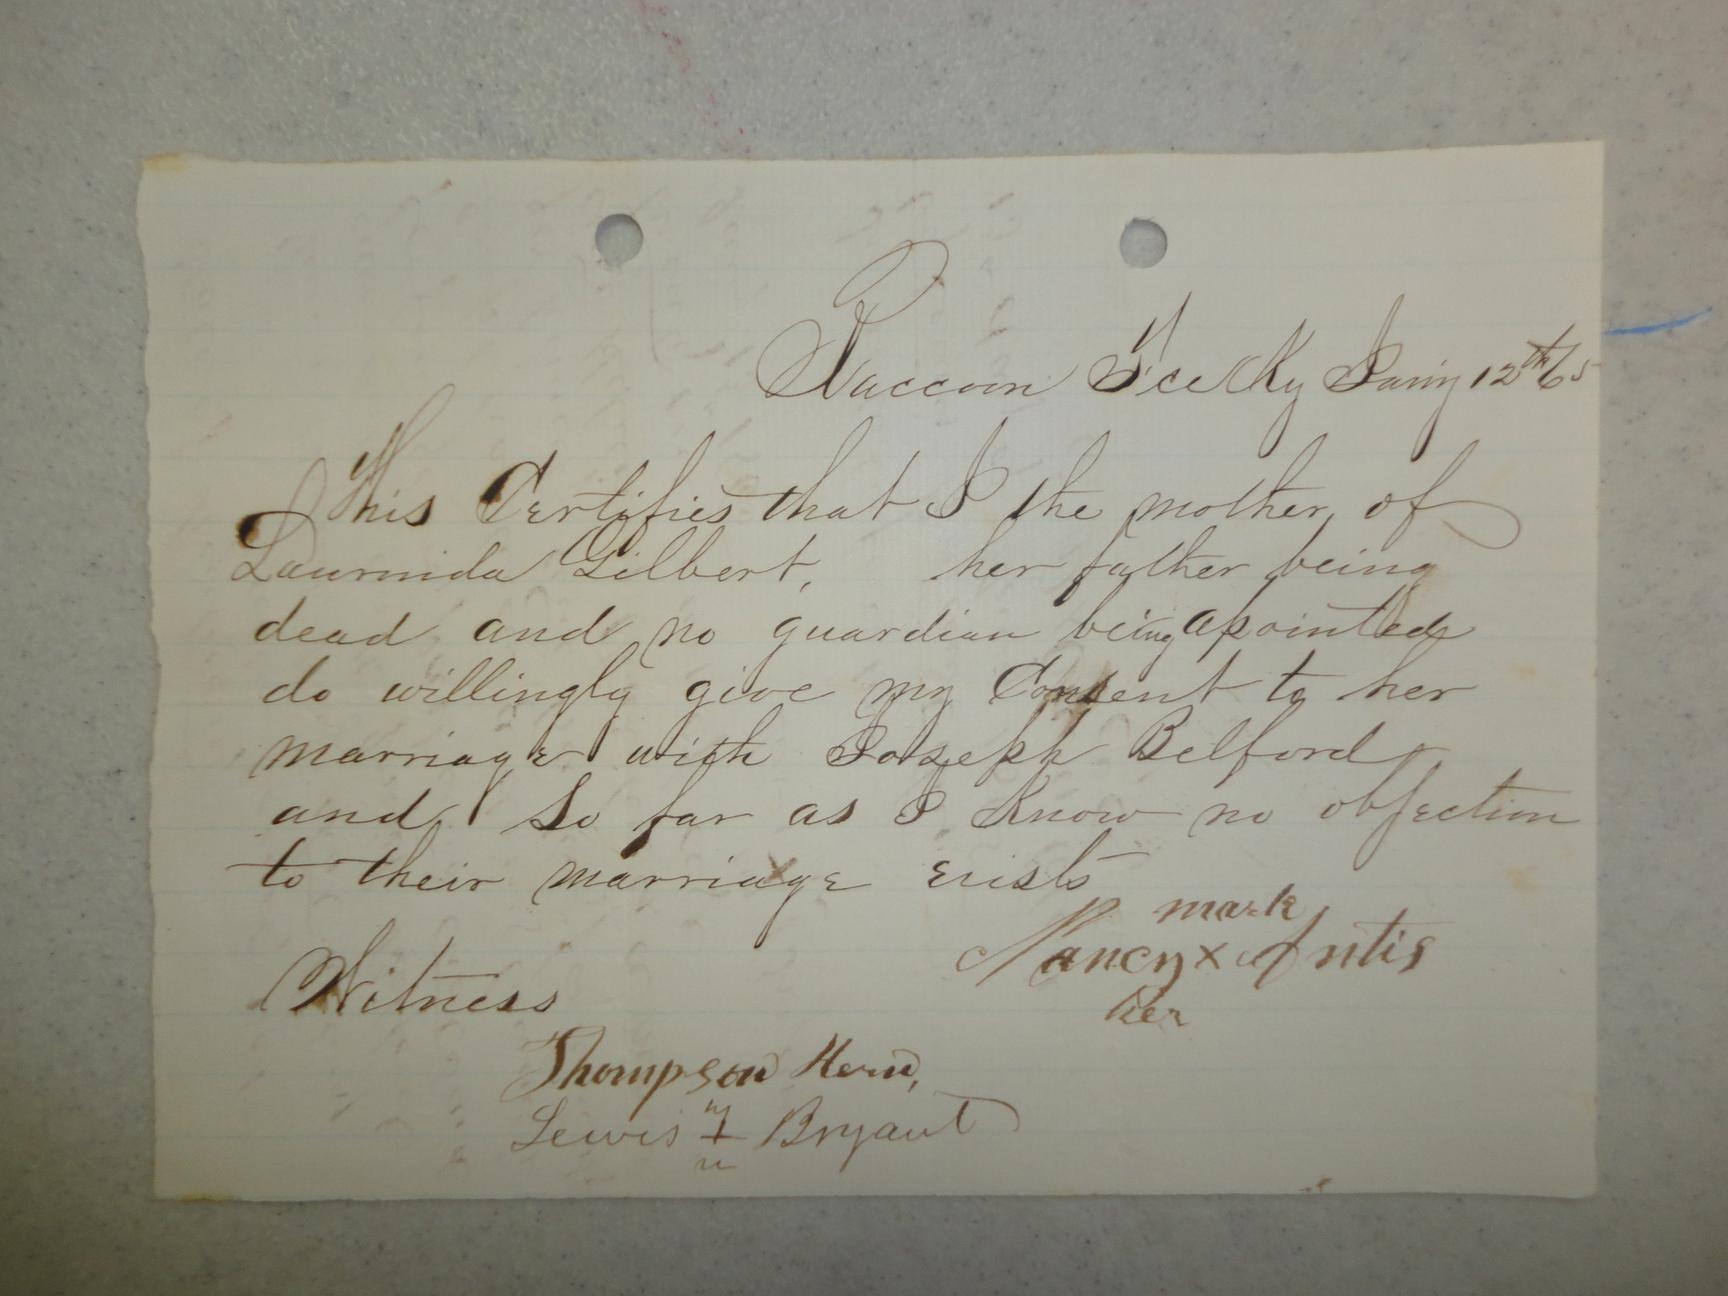 Raccoon Fce Ky Jany 12th 65
This Certifies that I the mother of
Laurinda Gilbert, her father being
dead and no guardian being apointed
do willingly give my Consent to her
marriage with Joseph Belford
and so far as I know no objection
to their marriage exists
mark
Nancy x Antis
her
Witness
Thompson Hern,
Lewis + Bryant